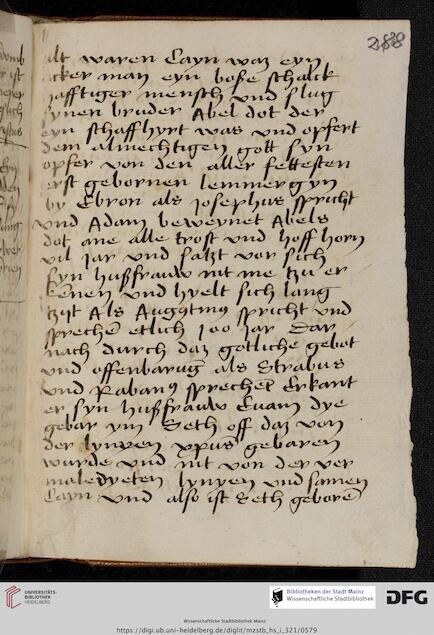 288
alt waren Cayn waz eyn
acker man eyn boße schalck
hafftiger mensch vnd slug
synen bruder Abel dot der
eyn schaffhyrt was vnd opfert
dem almechtigen gott syn
opfer von den aller fettesten
erst gebornen lemmer gyn
by Ebron als josephus spricht
vnd Adam beweynet Abels
dot ane alle trost vnd hoffnorn
vil jar vnd satzt vor sich
syn hußfrauw nit me tzu er
kēnen vnd hyelt sich lang
tzijt Als Augꝰtinꝰ spricht vnd
sprechē etlich 100 jar Dar
nach durch daz gotliche gebot
vnd offenbarūg als Strabus
vnd Rabanꝰ sprechēt Erkant
er syn hußfrauw Euam dye
gebar ym Seth off daz von
der lynyen xp̄us gebaren
wurde vnd nit von der ver
maledyeten lynyen vnd samen
Cayn vnd also ist Seth geborē
UNIVERSITÄTS-
BIBLIOTHEK
HEIDELBERG
Bibliotheken der Stadt Mainz
Wissenschaftliche Stadtbibliothek
DFG
Wissenschaftliche Stadtbibliothek Mainz
https://digi.ub.uni-heidelberg.de/diglit/mzstb_hs_i_321/0579